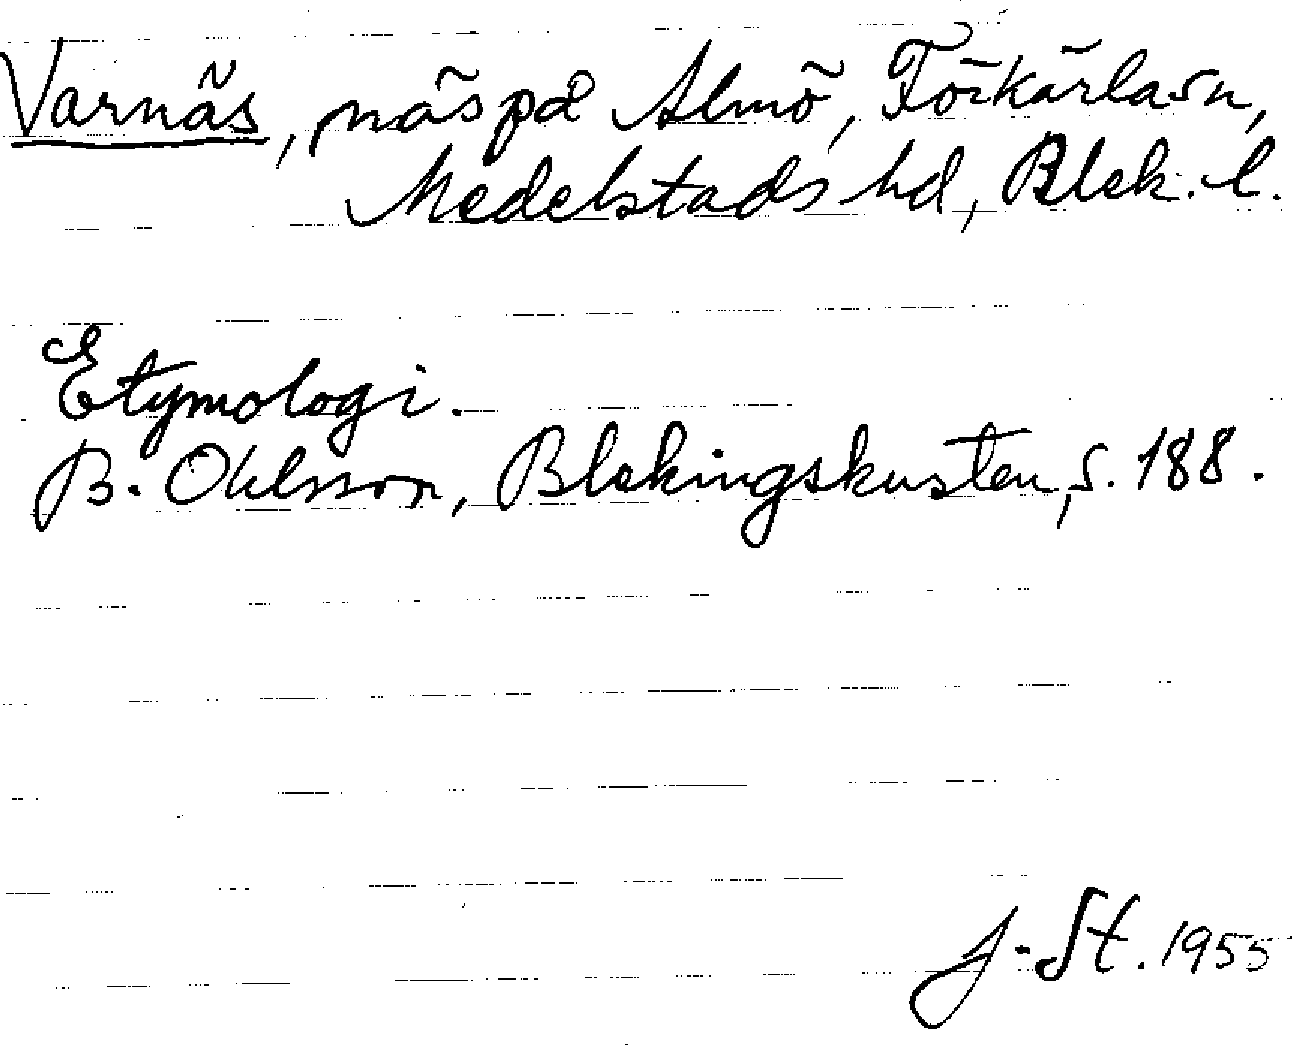 Varnäs, näs på Almö, Förkärla sn,
Medelstads hd, Blek. l.
Etymologi.
B. Ohlsson, Blekingskusten, s. 188.
J. St. 1955